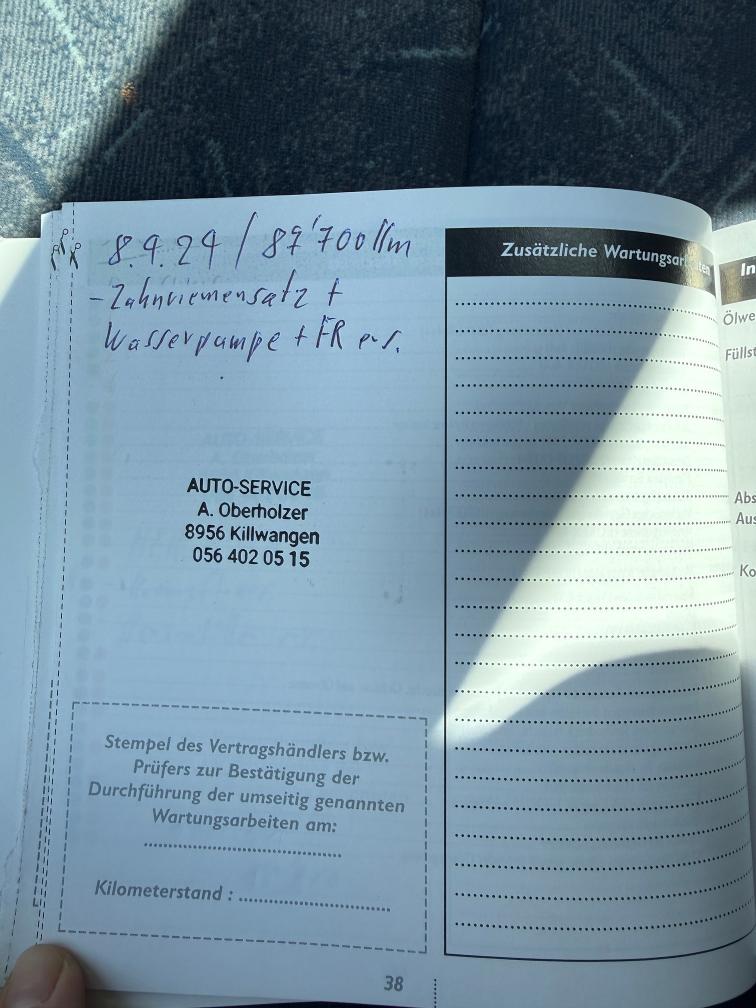 8.9.24 / 87'700 km
- Zahnriemensatz +
Wasserpumpe + FR ers.
AUTO-SERVICE
A. Oberholzer
8956 Killwangen
056 402 05 15
Stempel des Vertragshändlers bzw.
Prüfers zur Bestätigung der
Durchführung der umseitig genannten
Wartungsarbeiten am:
Kilometerstand :
38
Zusätzliche Wartungsarbeiten
In
Ölwe
Füllst
Abs
Aus
Ko